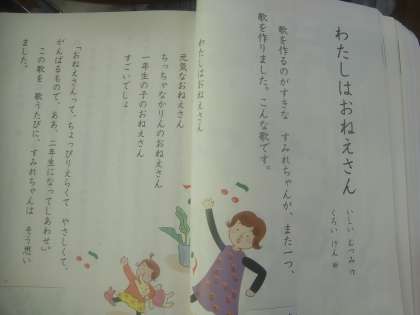 わたしはおねえさん
いしい むつみ 作
くろい けん 絵
歌を作るのがすきな すみれちゃんが、また一つ、
歌を作りました。こんな歌です。
わたしはおねえさん
元気なおねえさん
ちっちゃなかりんのおねえさん
一年生の子のおねえさん
すごいでしょ
「おねえさんって、ちょっぴりえらくて やさしくて、
がんばるもので、ああ、二年生になってしあわせ。」
この歌を 歌うたびに、すみれちゃんは そう思い
ました。